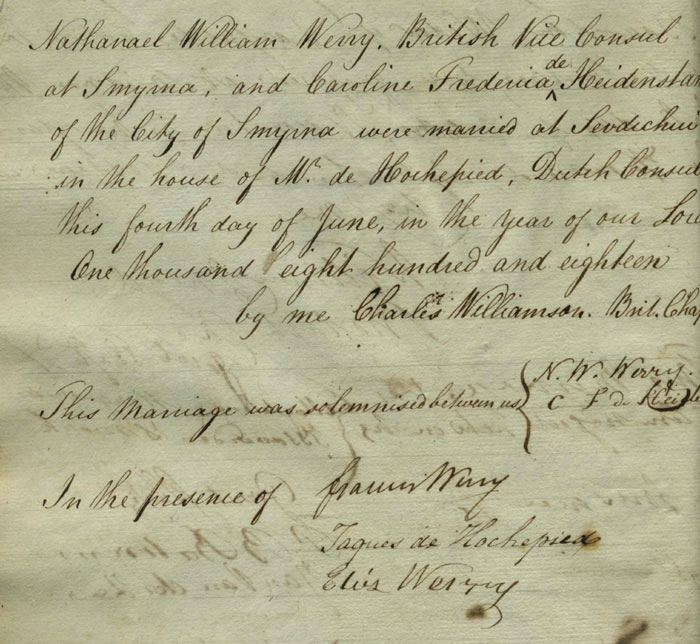 Nathanael William Werry, British Vice Consul
at Smyrna, and Caroline Frederica de Heidenstam
of the City of Smyrna were married at Sevdichui
in the house of Mr. de Hochepied, Dutch Consul
this fourth day of June, in the year of our Lor
One thousand eight hundred and eighteen
by me Charles Williamson. Brit. Chap
This Marriage was solemnised between us
N. W. Werry.
C F d
In the presence of Francis Werry
Jaques de Hochepied
Eliz Werry